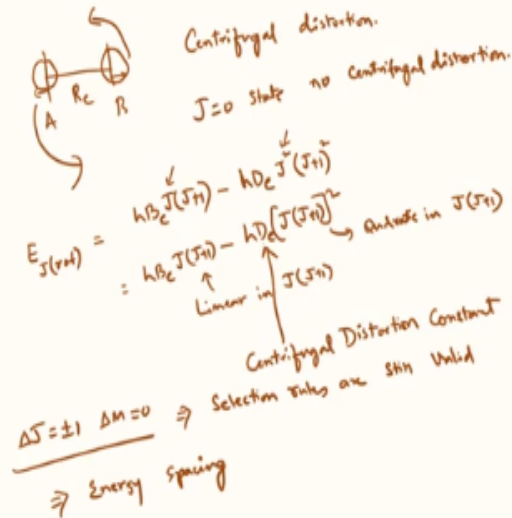 Centrifugal distortion.
A R_e B
J=0 state no centrifugal distortion.
E_J(rot) = hB_e J(J+1) - hD_e J²(J+1)²
= hB_e J(J+1) - hD_e [J(J+1)]² → Quadratic in J(J+1)
Linear in J(J+1)
Centrifugal Distortion Constant
ΔJ=±1 ΔM=0 ⇒ Selection rules are still valid
⇒ Energy spacing